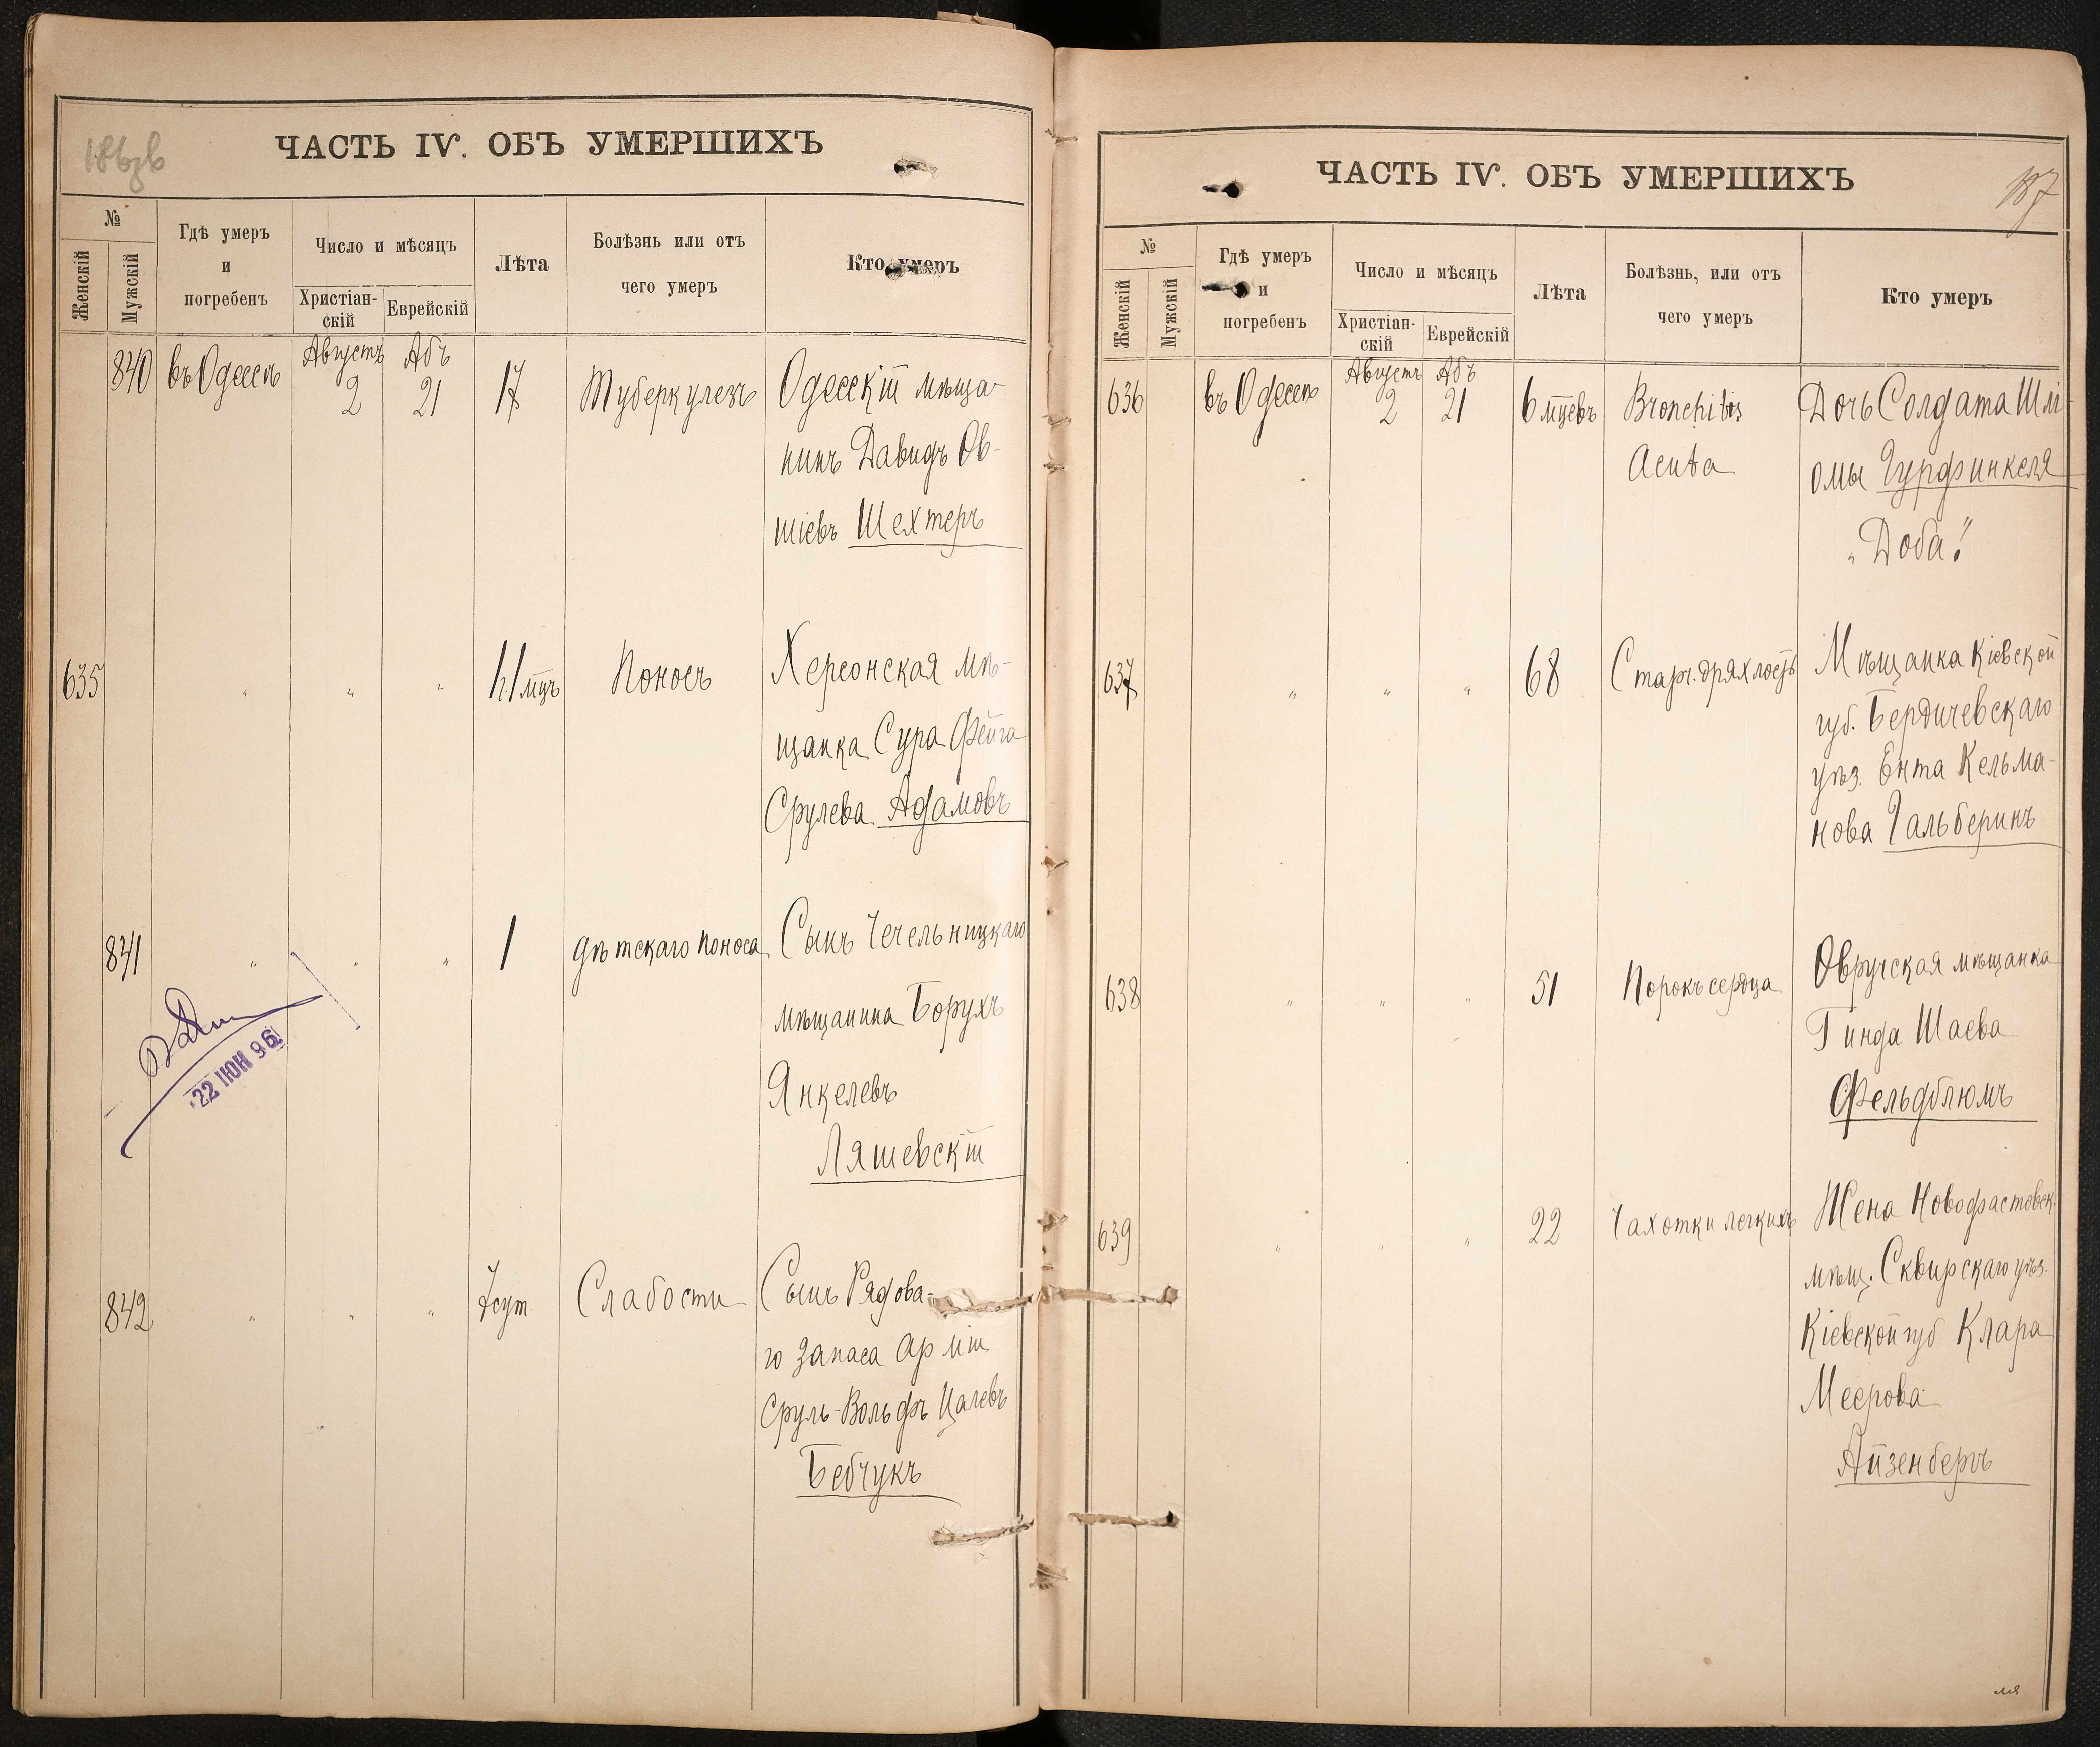 ЧАСТЬ IV. ОБЪ УМЕРШИХЪ
№
Женскій
Мужскій
Гдѣ умеръ
и
погребенъ
Число и мѣсяцъ
Христіан-
скій
Еврейскій
Лѣта
Болѣзнь или отъ
чего умеръ
Кто умеръ
840 въ Одессѣ Августъ 2 Абъ 21 17 Туберкулезъ Одесскій мѣща-
нинъ Давидъ Ов-
шіевъ Шехтеръ
635 " " " 1 мцъ Поносъ Херсонская мѣ-
щанка Сура Фейга
Срулева Адамовъ
841 " " " 1 дѣтскаго поноса Сынъ Чечельницкаго
мѣщанина Борухъ
Янкелевъ
Ляшевскій
22 ІЮН 96
842 " " " 7 сут Слабости Сынъ Рядова-
го запаса арміи
Сруль-Вольфъ Цалевъ
Бебчукъ
ЧАСТЬ IV. ОБЪ УМЕРШИХЪ
187
№
Женскій
Мужскій
Гдѣ умеръ
и
погребенъ
Число и мѣсяцъ
Христіан-
скій
Еврейскій
Лѣта
Болѣзнь, или отъ
чего умеръ
Кто умеръ
636 въ Одессѣ Августъ 2 Абъ 21 6 мцевъ Bronchitis Дочь Солдата Шлі-
Acuta омы Гурфинкеля
"Доба"
637 " " " 68 Старч. дряхлость Мѣщанка Кіевской
губ. Бердичевскаго
уѣз. Ента Кельма-
нова Гальберинъ
638 " " " 51 Порокъ сердца Овручская мѣщанка
Гинда Шаева
Фельдблюмъ
639 " " " 22 Чахотки легкихъ Жена Новофастовск.
мѣщ. Сквирскаго уѣз.
Кіевской губ Клара
Меерова
Айзенбергъ